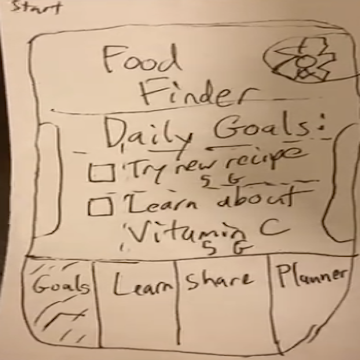 Start
Food
Finder
Daily Goals:
Try new recipe
5 G
Learn about
Vitamin C
5 G
Goals Learn Share Planner